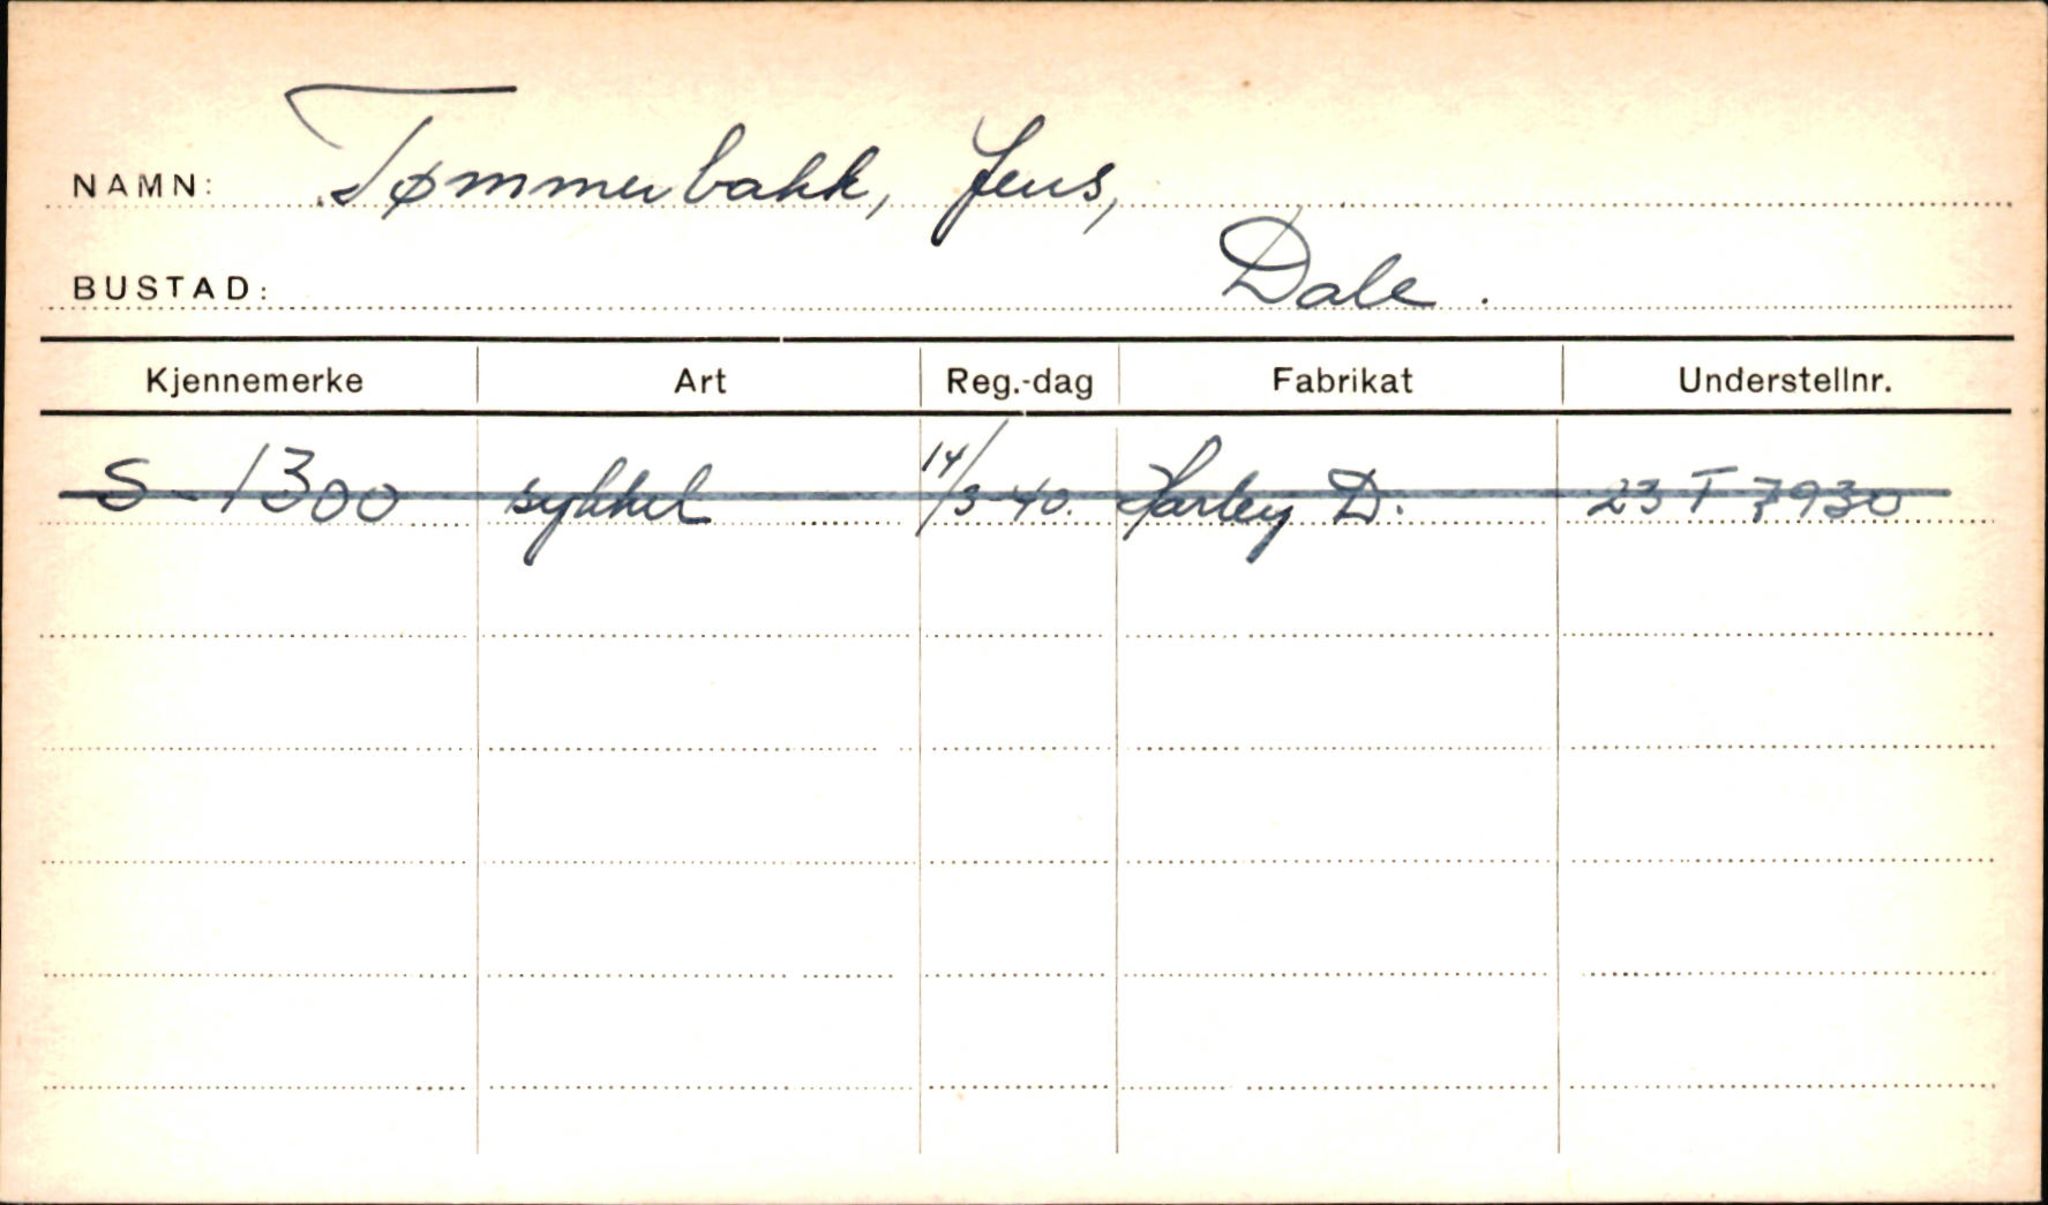 NAMN: Tømmerbakk, Jens,
BUSTAD: Dale.
Kjennemerke Art Reg.-dag Fabrikat Understellnr.
S-1300 sykkel 14/3-40. Harley D. 23 T 7930